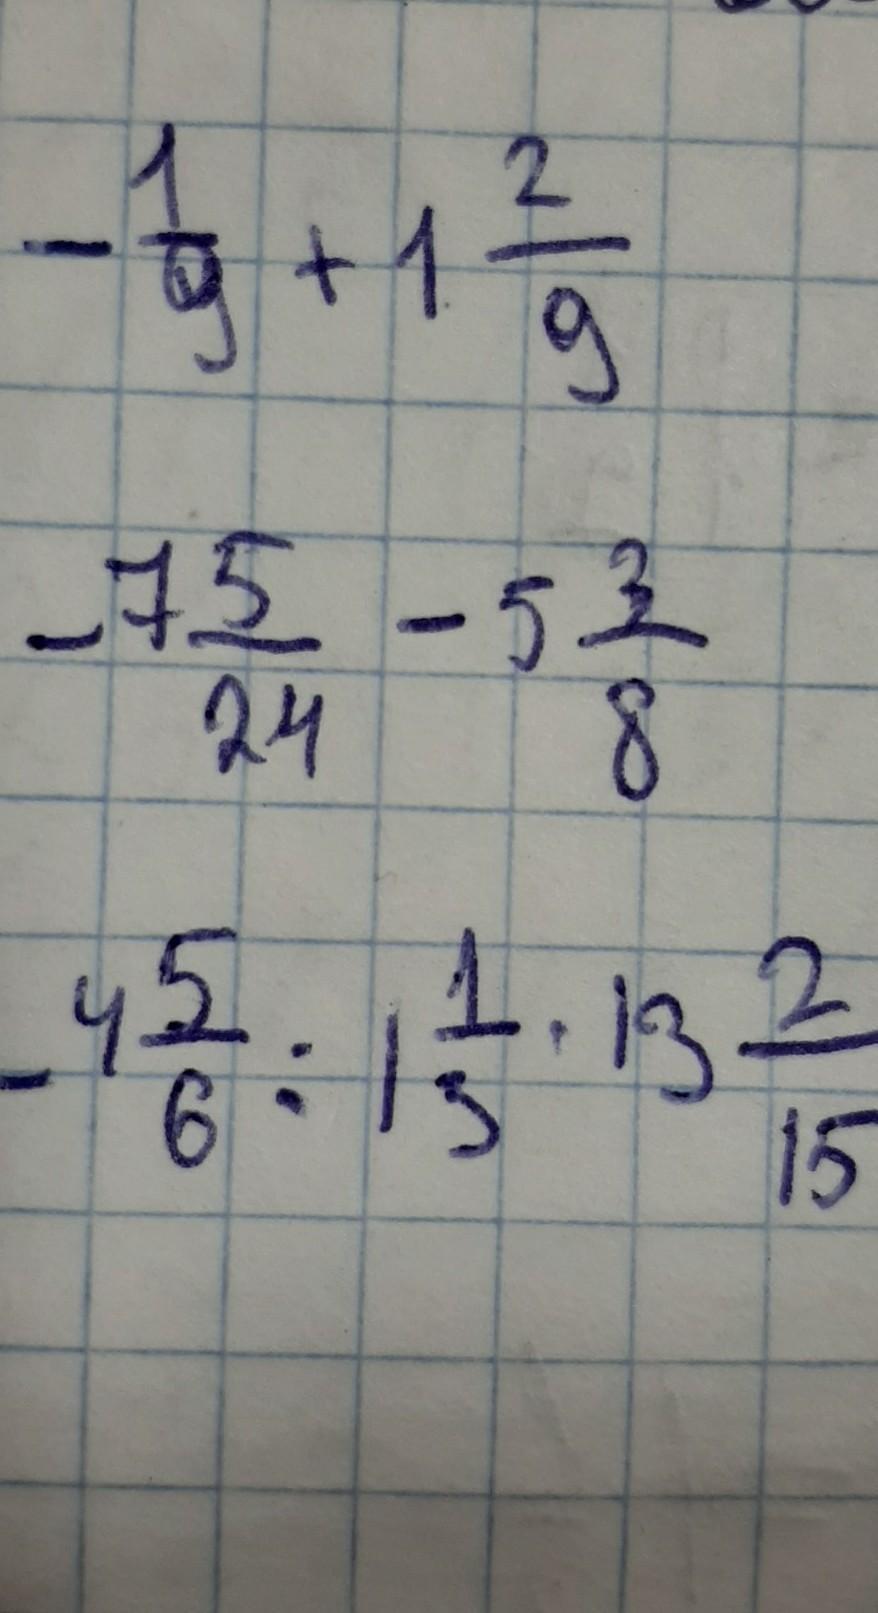 -1/9 + 1 2/9
-7 5/24 - 5 3/8
-4 5/6 : 1 1/3 · 13 2/15